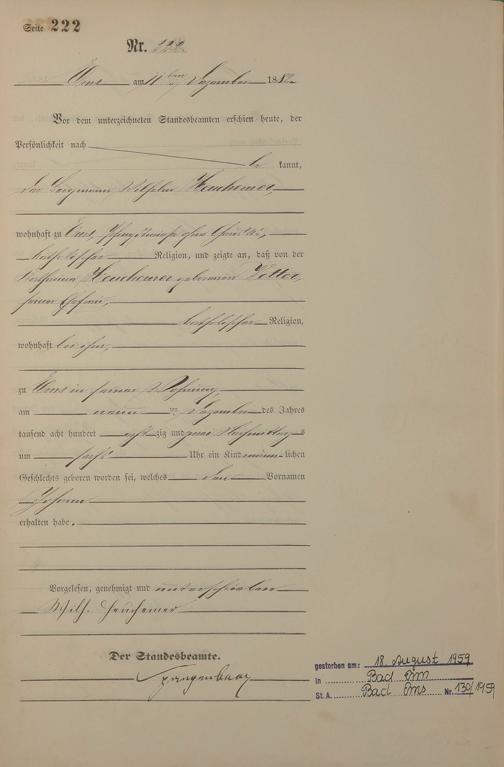 Seite 222
Nr. 222.
Ems am 11ten Dezember 1882
Vor dem unterzeichneten Standesbeamten erschien heute, der
Persönlichkeit nach
be kannt,
der Bergmann Wilhelm Heuchemer,
wohnhaft zu Ems,
katholischer Religion, und zeigte an, daß von der
Katharina Heuchemer geborenen Vetter,
seiner Ehefrau,
katholischer Religion,
wohnhaft bei ihm,
zu Ems in seiner Wohnung,
am neunten Dezember des Jahres
tausend acht hundert achtzig und zwei Nachmittags
um sechs Uhr ein Kind männlichen
Geschlechts geboren worden sei, welches den Vornamen
Johann
erhalten habe.
Vorgelesen, genehmigt und unterschrieben
Wilh. Heuchemer
Der Standesbeamte.
gestorben am: 18. August 1959
in Bad Ems
St. A. Bad Ems Nr. 130/1959